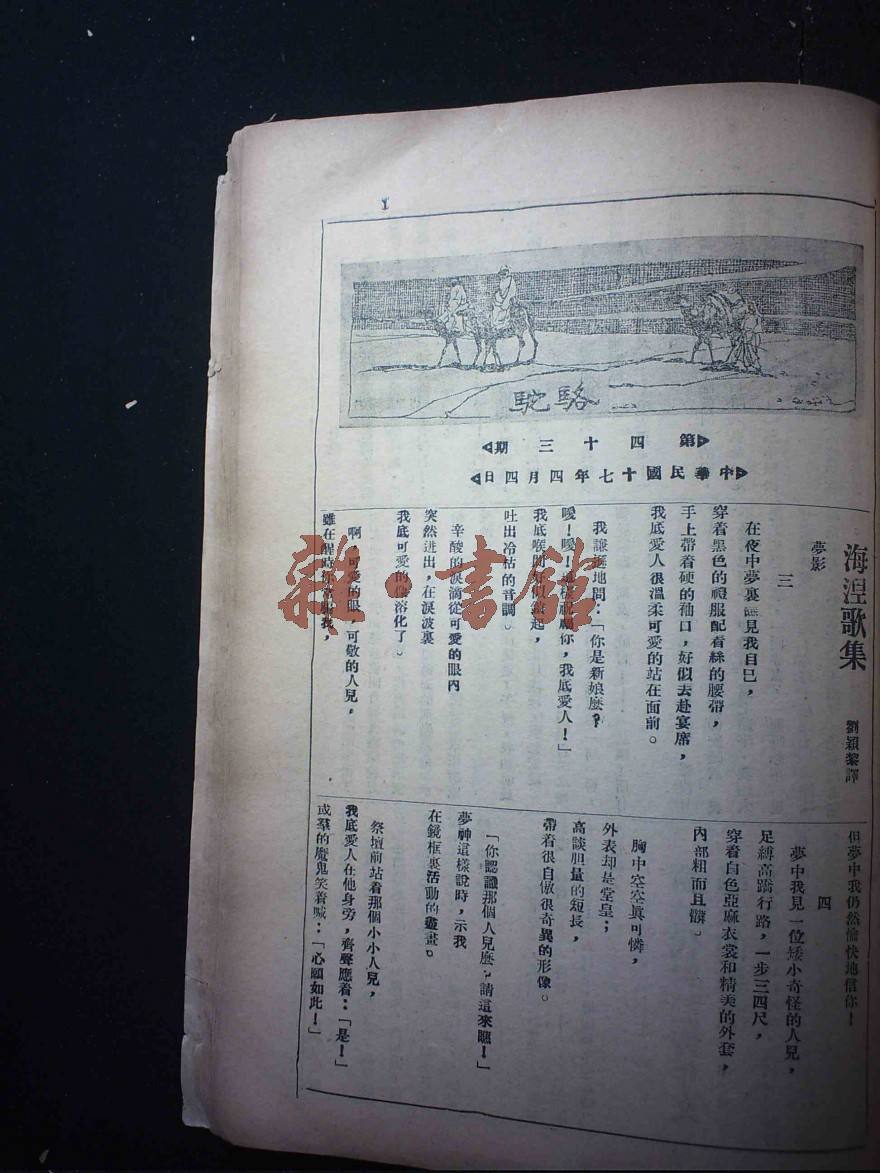 1
駱駝
第四十三期
中華民國十七年四月四日
海涅歌集
劉穎黎譯
夢影
三
在夜中夢裏瞧見我自已，
穿着黑色的禮服配着絲的腰帶，
手上帶着硬的袖口，好似去赴宴席，
我底愛人很溫柔可愛的站在面前。
我謙遜地問：「你是新娘麽？
噯！噯！這樣祝願你，我底愛人！」
我底喉間好似
吐出冷枯的音調。
辛酸的淚滴從可愛的眼內
突然迸出，在淚波裏
我底可愛的像溶化了。
啊，可愛的眼，可敬的人兒，
雖在醒時你常騙我，
但夢中我仍然愉快地信你！
四
夢中我見一位矮小奇怪的人兒，
足縛高蹻行路，一步三四尺，
穿着白色亞麻衣裳和精美的外套，
內部粗而且髒。
胸中空空眞可憐，
外表却是堂皇；
高談胆量的短長，
帶着很自傲很奇異的形像。
「你認識那個人兒麽？請這來瞧！」
夢神這樣說時，示我
在鏡框裏活動的盡畫。
祭壇前站着那個小小人兒，
我底愛人在他身旁，齊聲應着：「是！」
或羣的魔鬼笑着喊：「心願如此！」
雜·書館